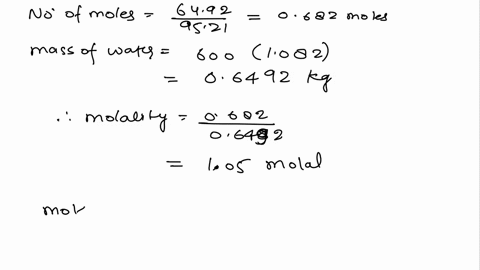 No. of moles = 64.92 / 95.21 = 0.682 moles
mass of water = 600 (1.082)
= 0.6492 kg
∴ molality = 0.682 / 0.6492
= 1.05 molal
mol